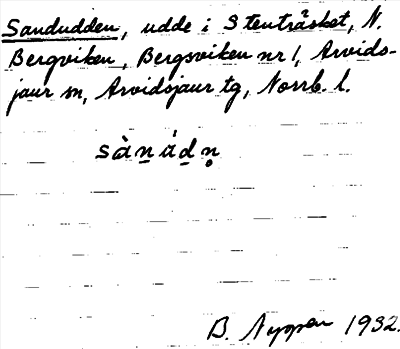 Sandudden, udde i Stenträsket, N.
Bergviken, Bergsviken nr 1, Arvids-
jaur sn, Arvidsjaur tg, Norrb. l.
sàṉáḏṉ̥
B. Nyppen 1932.